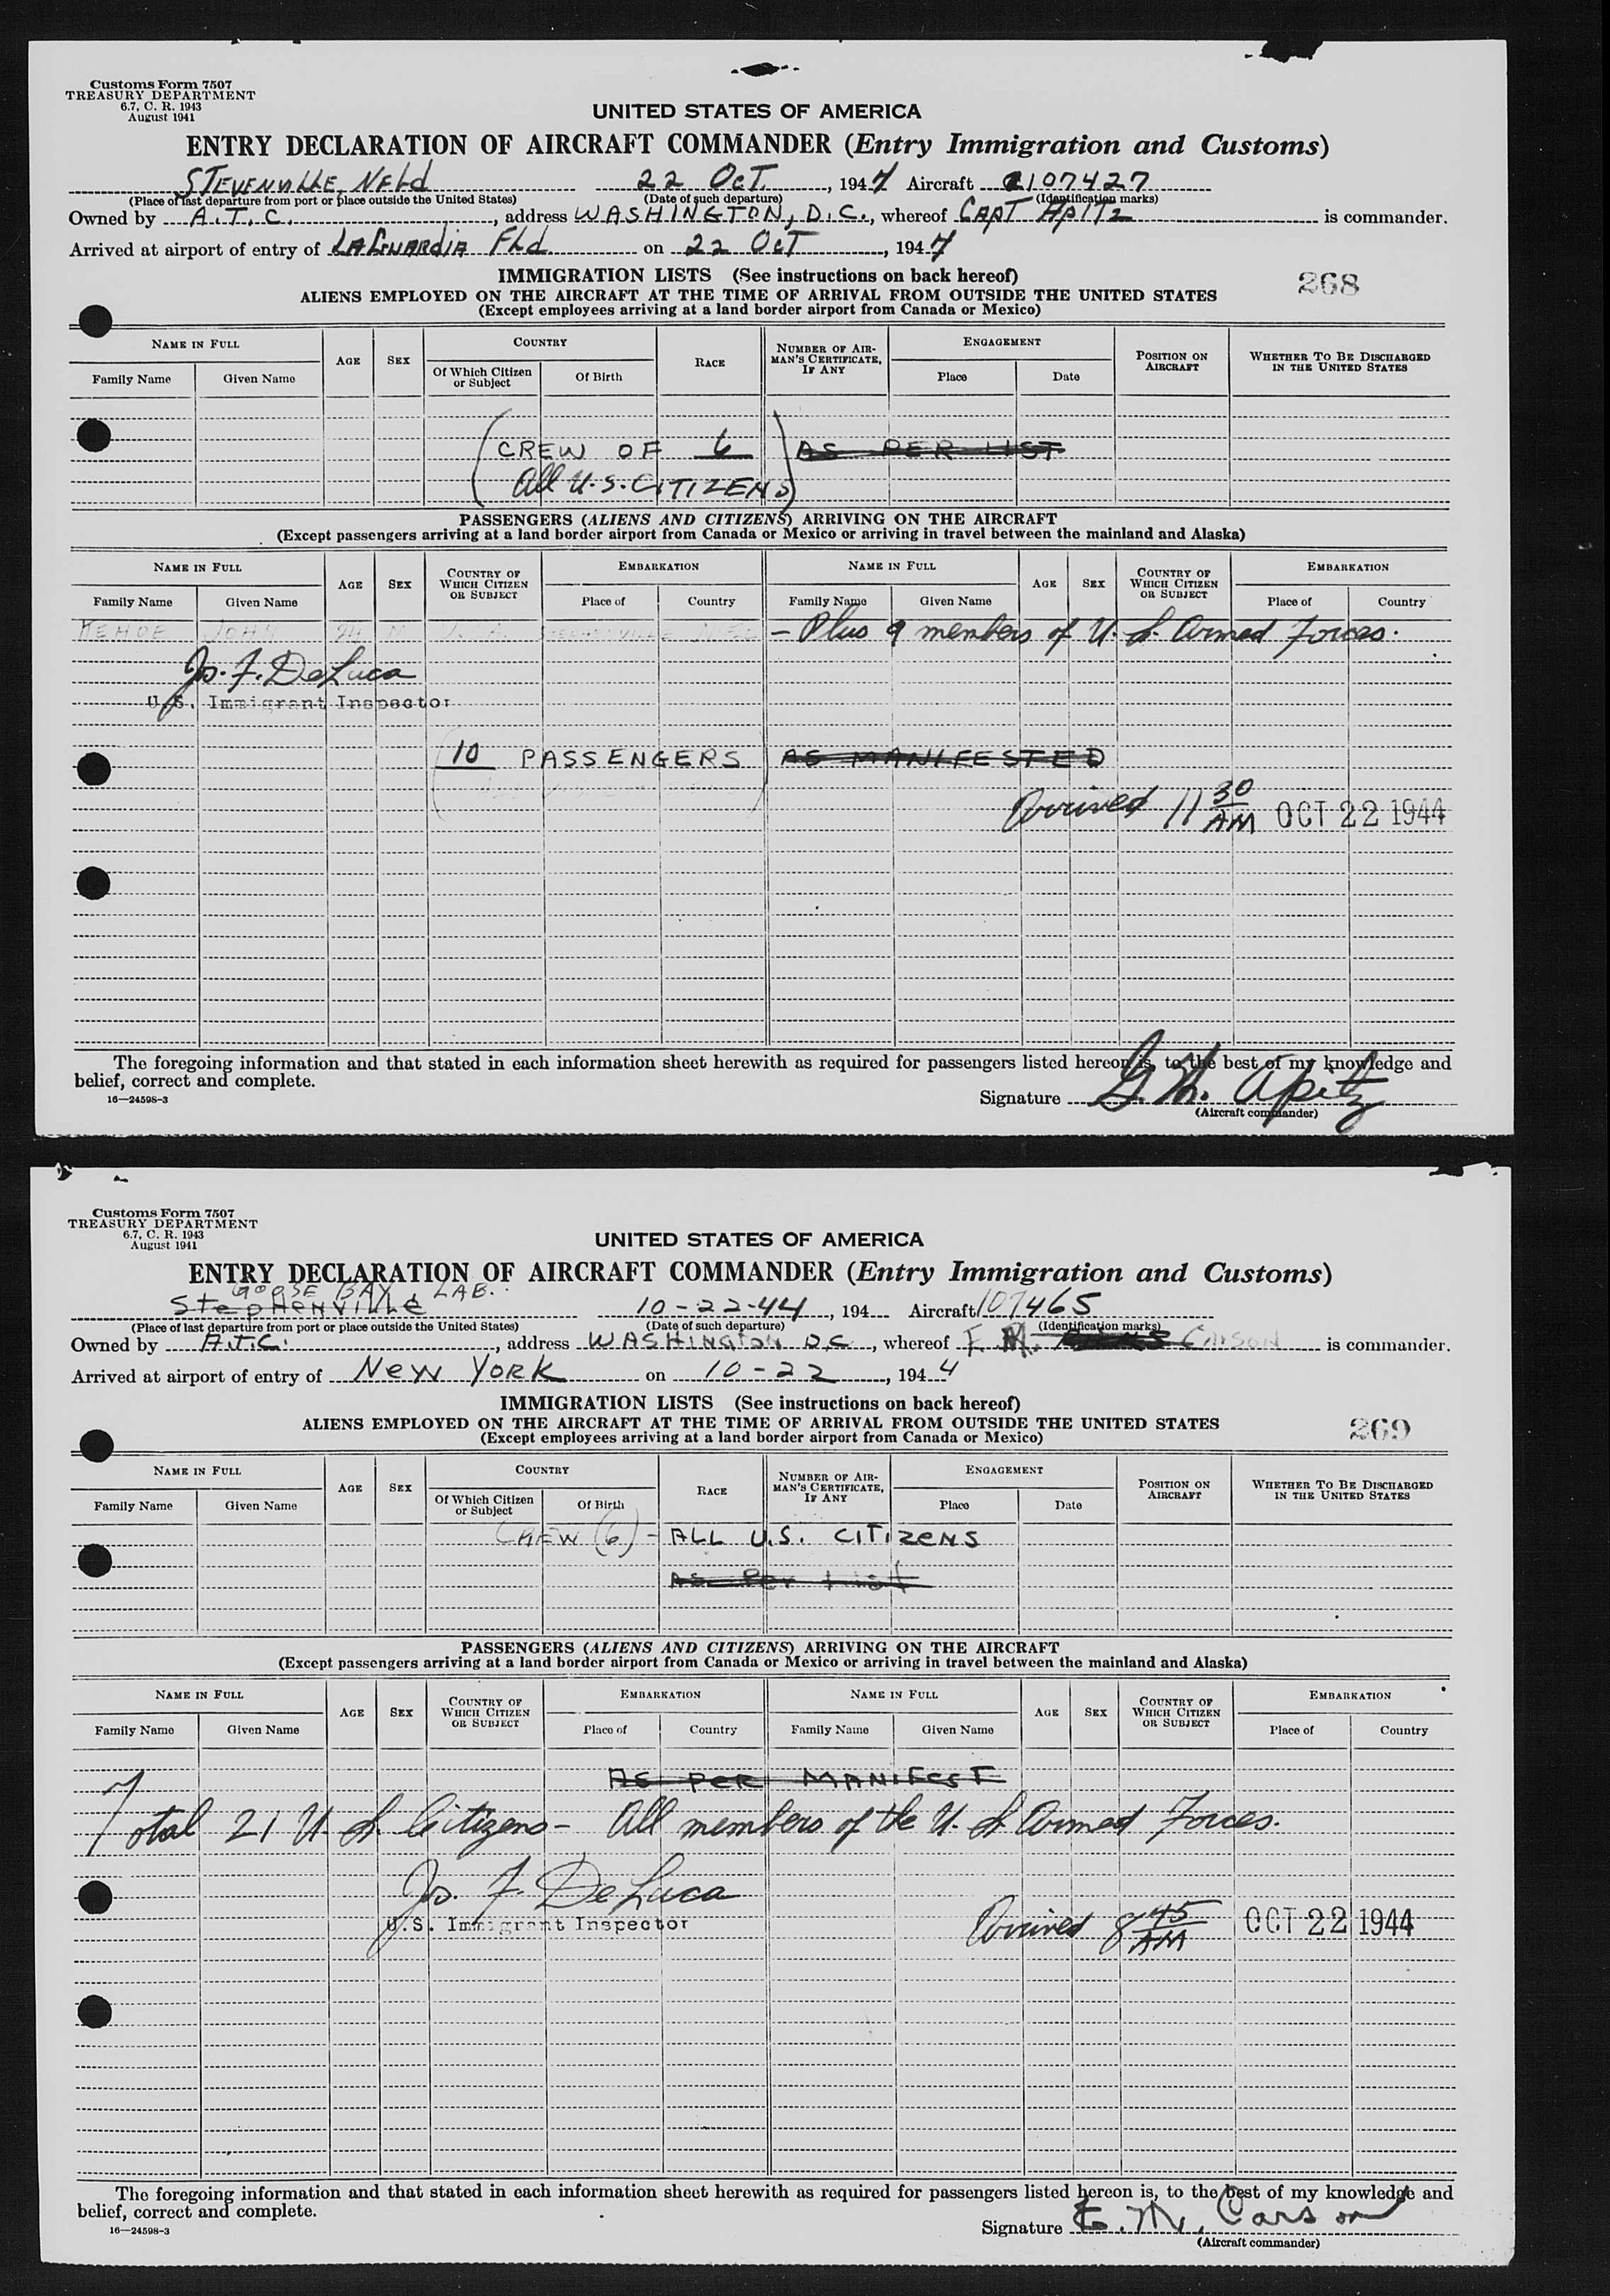 Customs Form 7507
TREASURY DEPARTMENT
6.7, C. R. 1943
August 1941
UNITED STATES OF AMERICA
ENTRY DECLARATION OF AIRCRAFT COMMANDER (Entry Immigration and Customs)
STEVENVILLE, NFLd 22 OCT. , 1944 Aircraft 107427
(Place of last departure from port or place outside the United States) (Date of such departure) (Identification marks)
Owned by A.T.C. , address WASHINGTON, D.C., whereof CAPT APITZ is commander.
Arrived at airport of entry of LAGUARDIA FLd on 22 OCT , 1944
IMMIGRATION LISTS (See instructions on back hereof)
268
ALIENS EMPLOYED ON THE AIRCRAFT AT THE TIME OF ARRIVAL FROM OUTSIDE THE UNITED STATES
(Except employees arriving at a land border airport from Canada or Mexico)
NAME IN FULL AGE SEX COUNTRY RACE NUMBER OF AIRMAN'S CERTIFICATE, IF ANY ENGAGEMENT POSITION ON AIRCRAFT WHETHER TO BE DISCHARGED IN THE UNITED STATES
Family Name Given Name Of Which Citizen or Subject Of Birth Place Date
(CREW OF 6) AS PER LIST
All U.S. CITIZENS
PASSENGERS (ALIENS AND CITIZENS) ARRIVING ON THE AIRCRAFT
(Except passengers arriving at a land border airport from Canada or Mexico or arriving in travel between the mainland and Alaska)
NAME IN FULL AGE SEX COUNTRY OF WHICH CITIZEN OR SUBJECT EMBARKATION NAME IN FULL AGE SEX COUNTRY OF WHICH CITIZEN OR SUBJECT EMBARKATION
Family Name Given Name Place of Country Family Name Given Name Place of Country
KEHOE JOHN 24 M - Plus 9 members of U.S. Armed Forces.
Jos. F. DeLuca
U.S. Immigrant Inspector
10 PASSENGERS AS MANIFESTED
Arrived 11 30 AM OCT 22 1944
The foregoing information and that stated in each information sheet herewith as required for passengers listed hereon is, to the best of my knowledge and
belief, correct and complete.
16—24598-3
Signature G. H. Apitz
(Aircraft commander)
Customs Form 7507
TREASURY DEPARTMENT
6.7, C. R. 1943
August 1941
UNITED STATES OF AMERICA
ENTRY DECLARATION OF AIRCRAFT COMMANDER (Entry Immigration and Customs)
GOOSE BAY, LAB.
Stephenville 10-22-44 , 194 Aircraft 107465
(Place of last departure from port or place outside the United States) (Date of such departure) (Identification marks)
Owned by A.T.C. , address WASHINGTON D.C. , whereof E. M. CARSON is commander.
Arrived at airport of entry of New York on 10-22 , 1944
IMMIGRATION LISTS (See instructions on back hereof)
269
ALIENS EMPLOYED ON THE AIRCRAFT AT THE TIME OF ARRIVAL FROM OUTSIDE THE UNITED STATES
(Except employees arriving at a land border airport from Canada or Mexico)
NAME IN FULL AGE SEX COUNTRY RACE NUMBER OF AIRMAN'S CERTIFICATE, IF ANY ENGAGEMENT POSITION ON AIRCRAFT WHETHER TO BE DISCHARGED IN THE UNITED STATES
Family Name Given Name Of Which Citizen or Subject Of Birth Place Date
CREW (6) - ALL U.S. CITIZENS
AS Per List
PASSENGERS (ALIENS AND CITIZENS) ARRIVING ON THE AIRCRAFT
(Except passengers arriving at a land border airport from Canada or Mexico or arriving in travel between the mainland and Alaska)
NAME IN FULL AGE SEX COUNTRY OF WHICH CITIZEN OR SUBJECT EMBARKATION NAME IN FULL AGE SEX COUNTRY OF WHICH CITIZEN OR SUBJECT EMBARKATION
Family Name Given Name Place of Country Family Name Given Name Place of Country
AS PER MANIFEST
Total 21 U.S. Citizens - All members of the U.S. Armed Forces.
Jos. F. DeLuca
U.S. Immigrant Inspector
Arrived 8 45 AM OCT 22 1944
The foregoing information and that stated in each information sheet herewith as required for passengers listed hereon is, to the best of my knowledge and
belief, correct and complete.
16—24598-3
Signature E. M. Carson
(Aircraft commander)